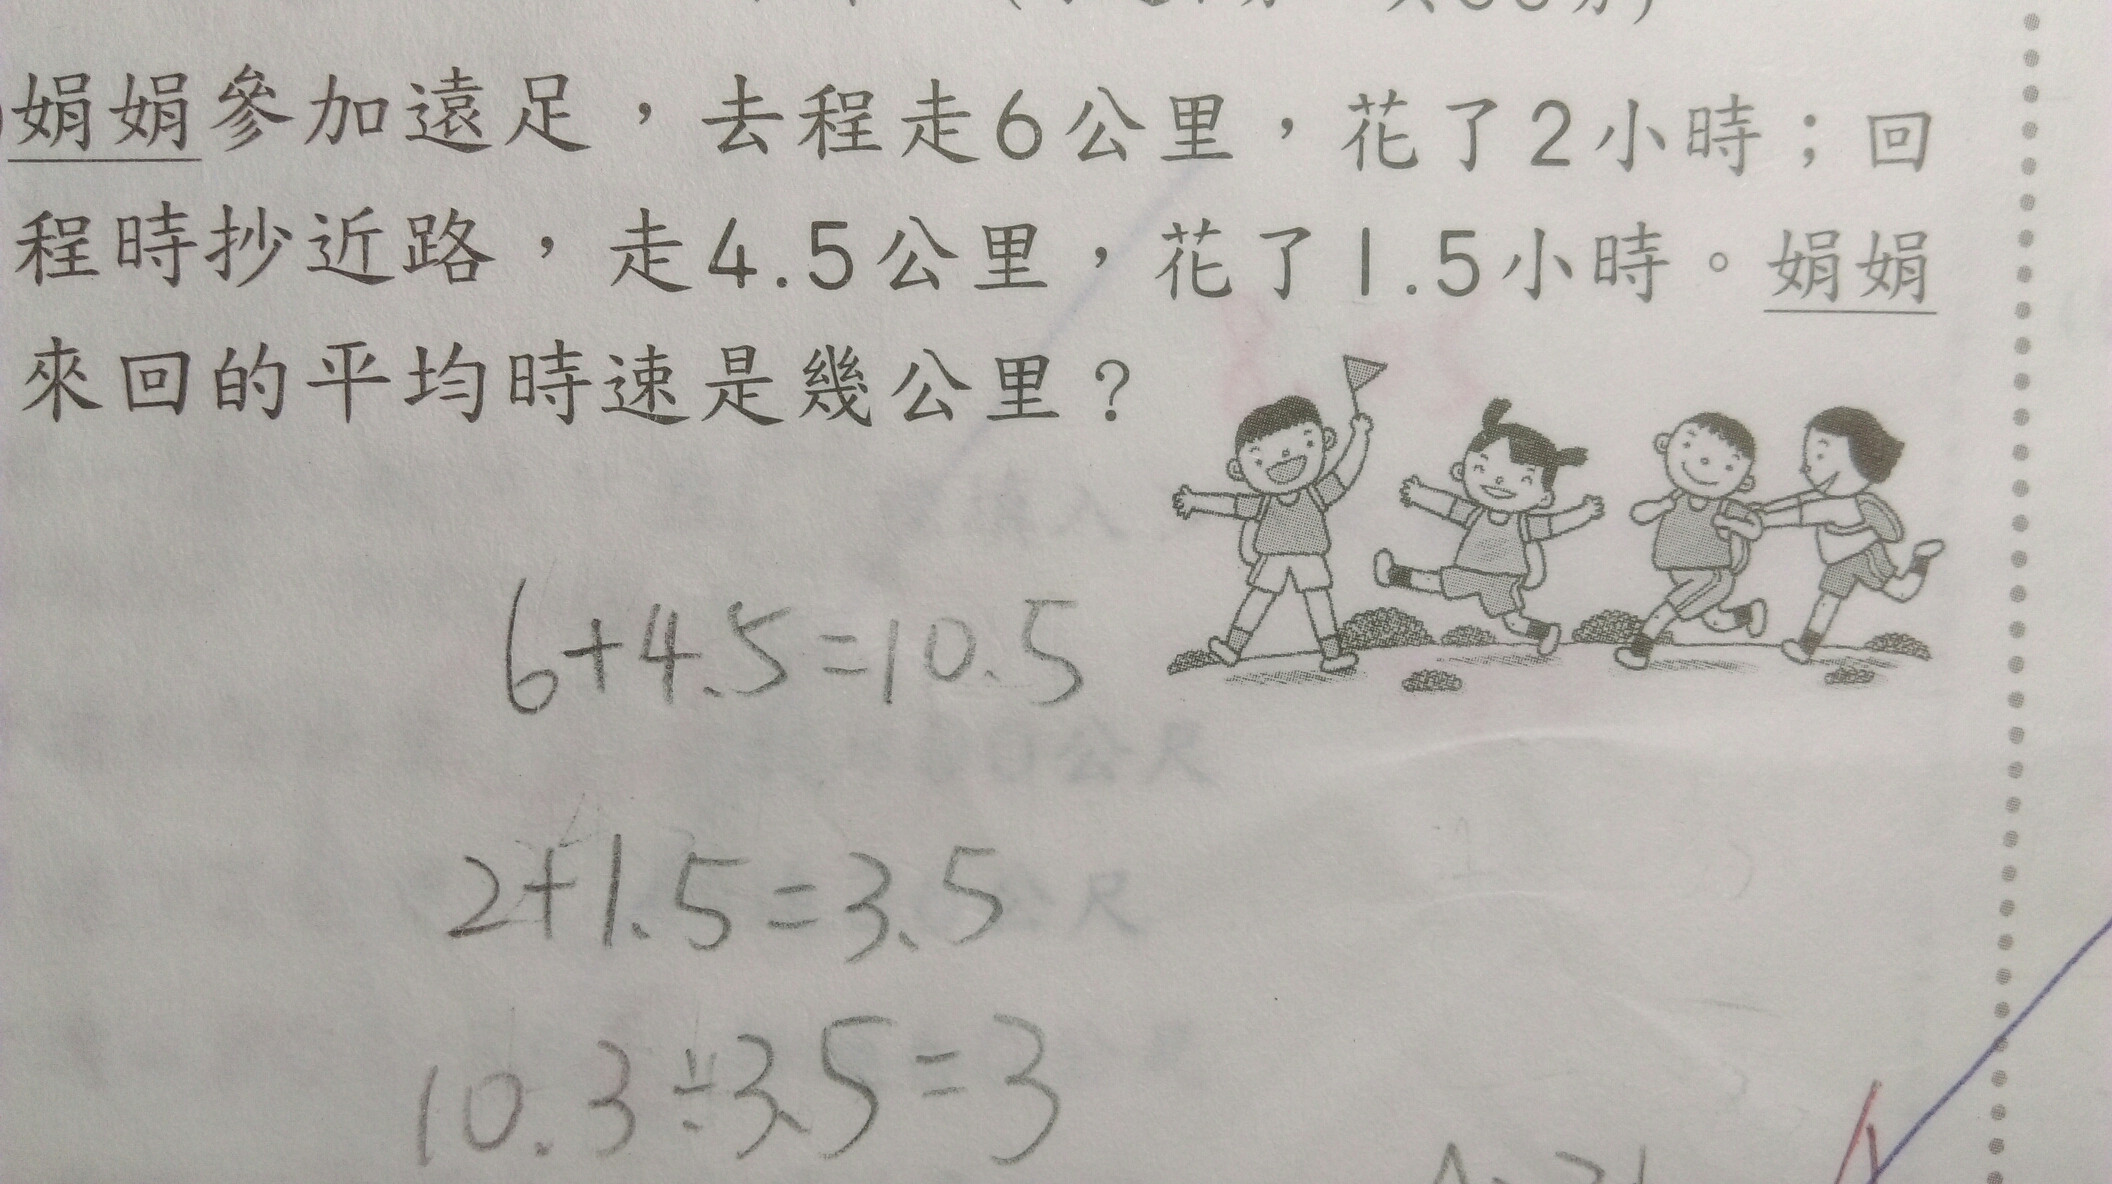 娟娟參加遠足，去程走6公里，花了2小時；回
程時抄近路，走4.5公里，花了1.5小時。娟娟
來回的平均時速是幾公里？
6+4.5=10.5
2+1.5=3.5
10.3÷3.5=3